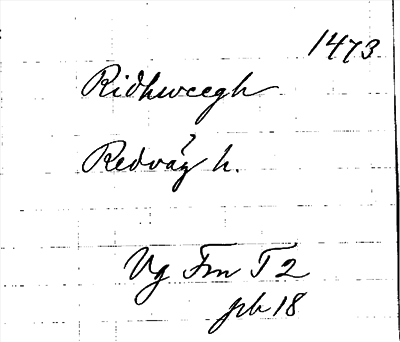 1473
Ridhwcegh
Redväg h.
Vg Fm T 2
pb 18